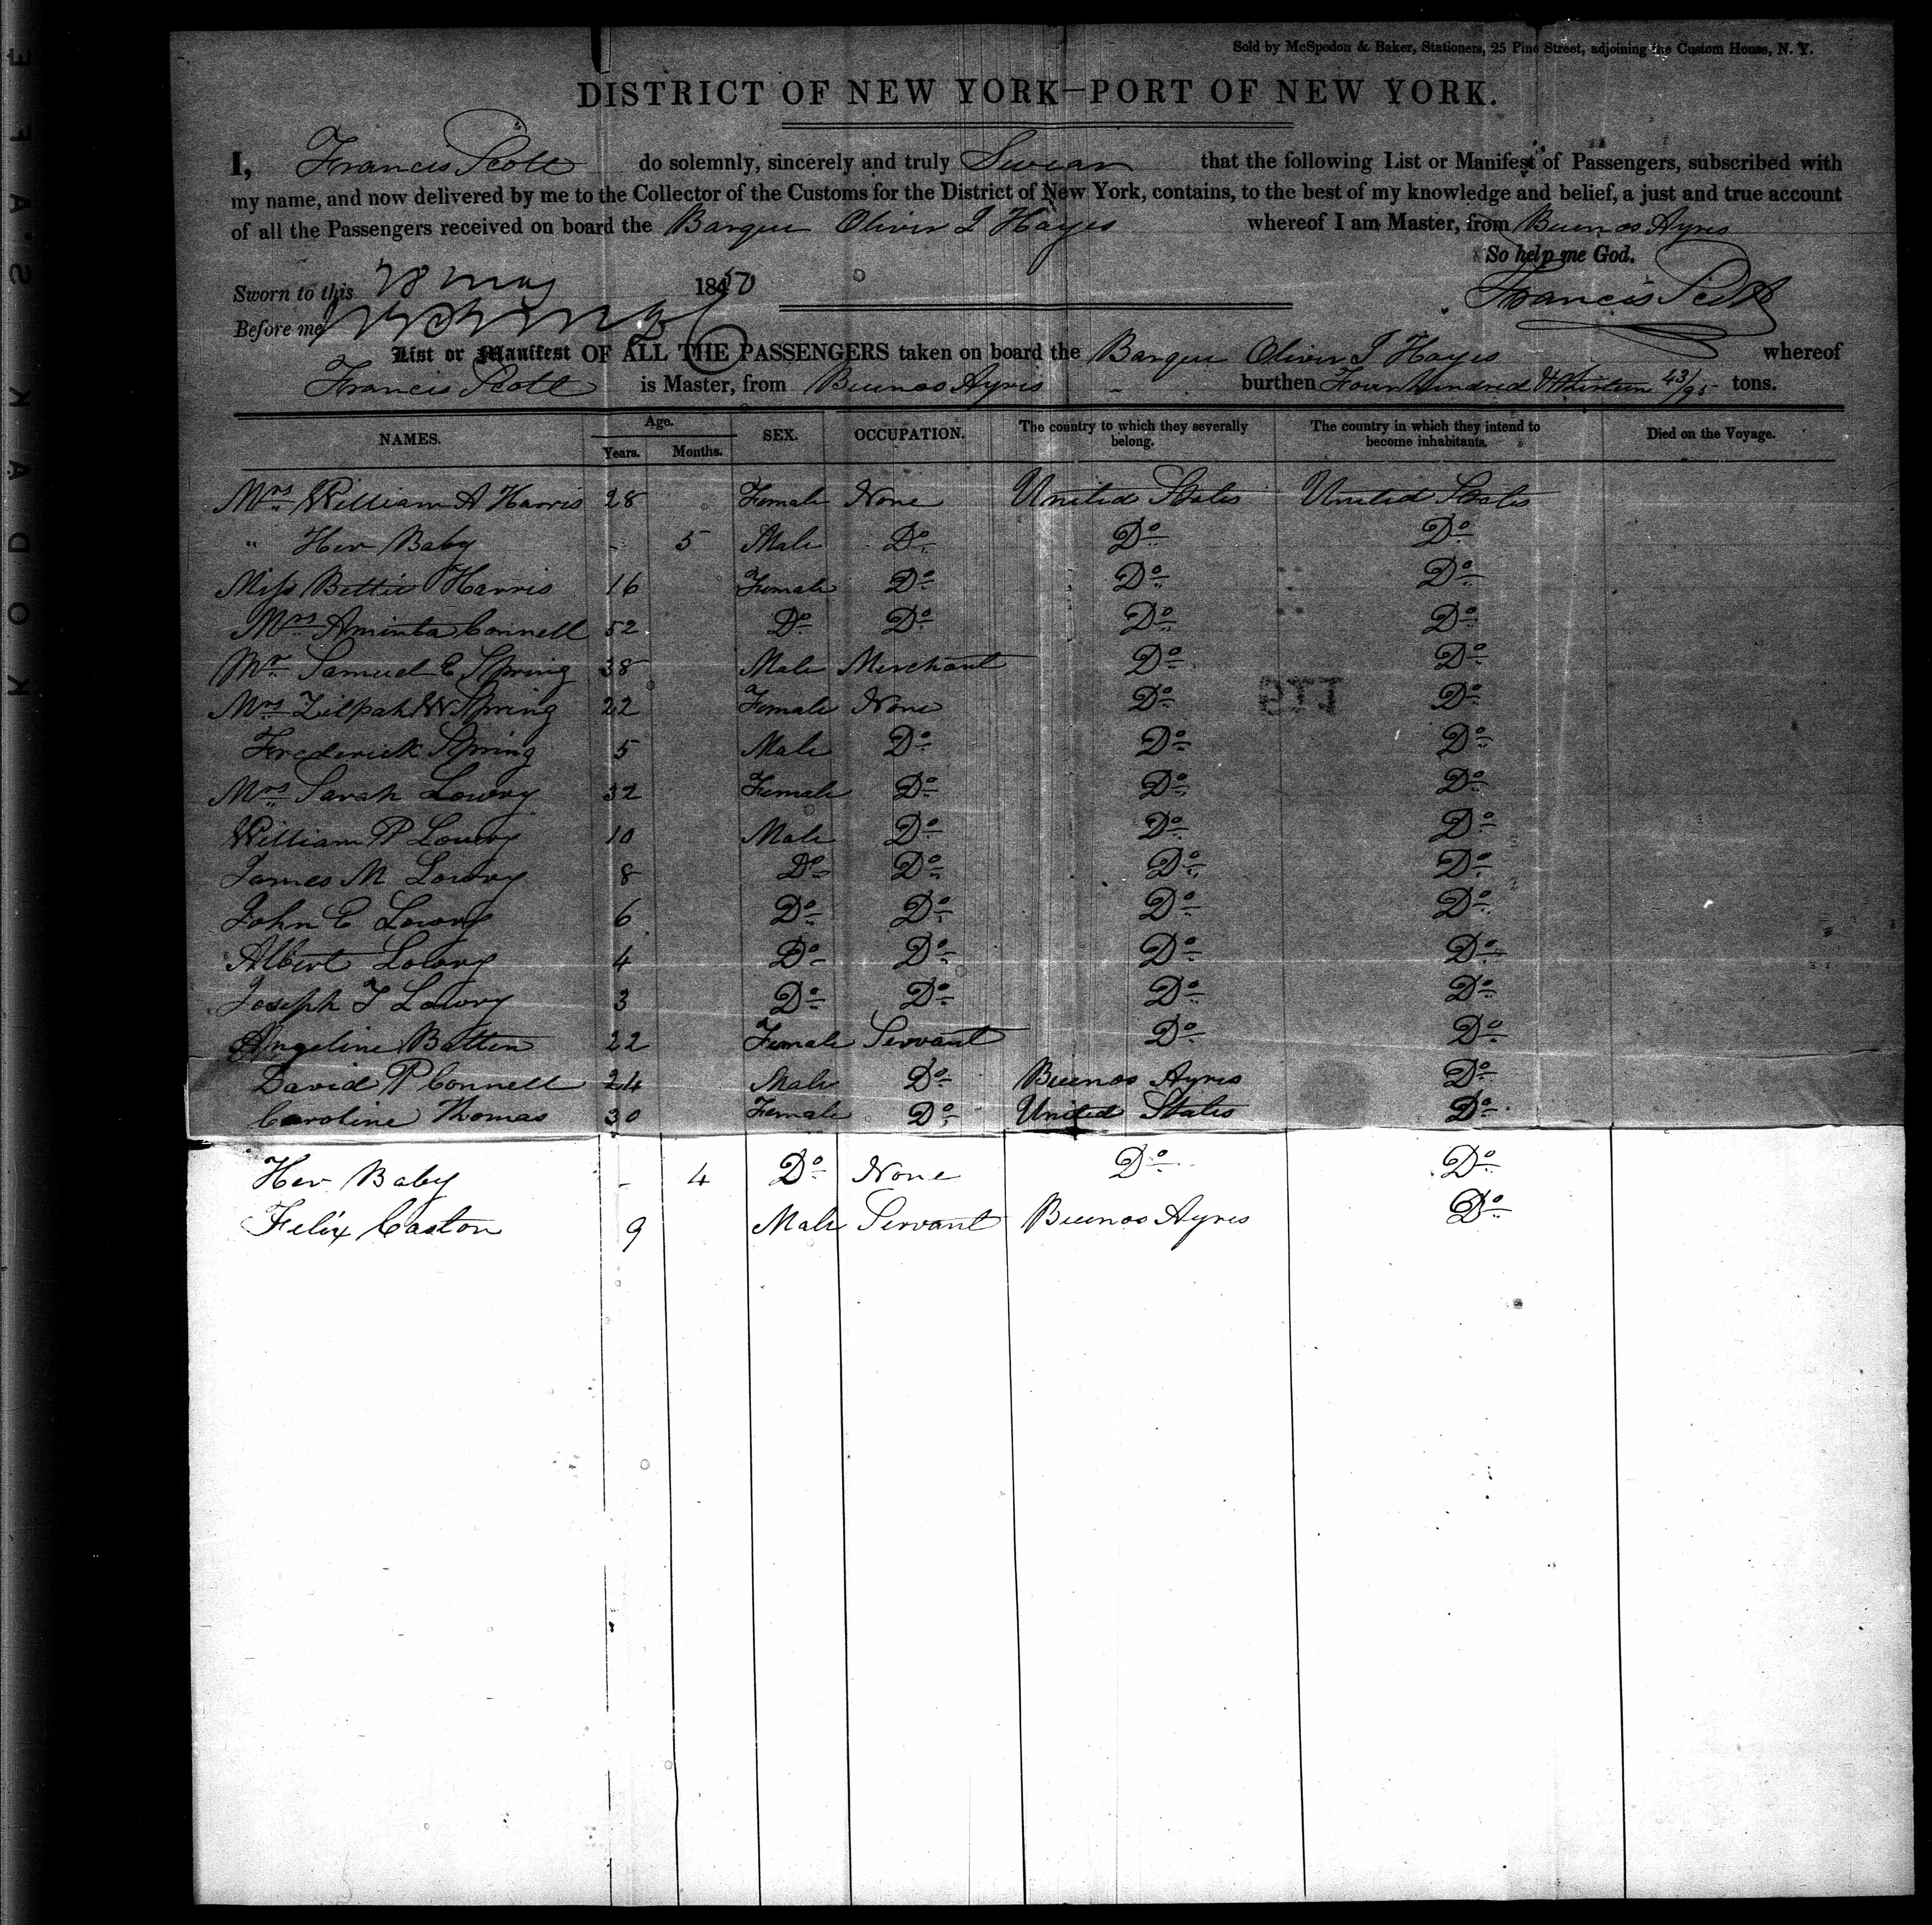 Sold by McSpedon & Baker, Stationers, 25 Pine Street, adjoining the Custom House, N. Y.
DISTRICT OF NEW YORK—PORT OF NEW YORK.
I, Francis Scott do solemnly, sincerely and truly Swear that the following List or Manifest of Passengers, subscribed with
my name, and now delivered by me to the Collector of the Customs for the District of New York, contains, to the best of my knowledge and belief, a just and true account
of all the Passengers received on board the Barque Oliver J Hayes whereof I am Master, from Buenos Ayres
So help me God.
Sworn to this 28 May 1850
Francis Scott
Before me
List or Manifest OF ALL THE PASSENGERS taken on board the Barque Oliver J Hayes whereof
Francis Scott is Master, from Buenos Ayres burthen Four hundred & thirteen 43/95 tons.
NAMES. Age. Years. Months. SEX. OCCUPATION. The country to which they severally belong. The country in which they intend to become inhabitants. Died on the Voyage.
Mrs William A Harris 28 Female None United States United States
" Her Baby - 5 Male Do Do Do
Miss Bettie Harris 16 Female Do Do Do
Mrs Aminta Connell 52 Do Do Do Do
Mr Samuel E Spring 38 Male Merchant Do Do
Mrs Zilpah W Spring 22 Female None Do Do
Frederick Spring 5 Male Do Do Do
Mrs Sarah Lowry 32 Female Do Do Do
William P Lowry 10 Male Do Do Do
James M Lowry 8 Do Do Do Do
John E Lowry 6 Do Do Do Do
Albert Lowry 4 Do Do Do Do
Joseph T Lowry 3 Do Do Do Do
Angeline Batten 22 Female Servant Do Do
David P Connell 24 Male Do Buenos Ayres Do
Caroline Thomas 30 Female Do United States Do
Her Baby - 4 Do None Do Do
Felix Caston 9 Male Servant Buenos Ayres Do
KODAK SAFETY